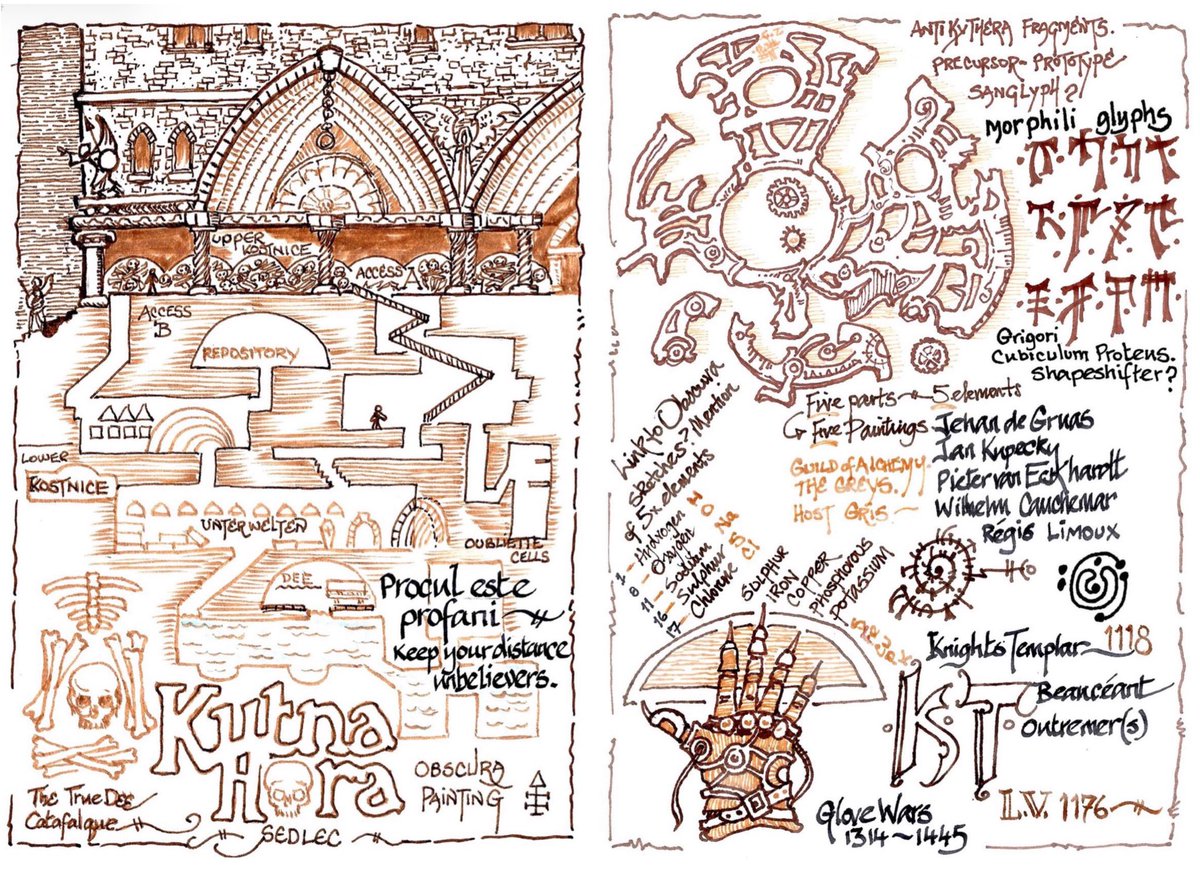 UPPER
KOSTNICE
ACCESS
A
ACCESS
'B
REPOSITORY
LOWER
KOSTNICE
UNTERWELTEN
OUBLIETTE
CELLS
DEE
Procul este
profani
Keep your distance
unbelievers.
Kutna
Hora
SEDLEC
OBSCURA
PAINTING
The True Dee
Catafalque
ANTIKYTHERA FRAGMENTS.
PRECURSOR - PROTOTYPE
SANGLYPH?
Morphili glyphs
Grigori
Cubiculum Protens.
Shapeshifter?
Five parts ~ 5 elements
Five Paintings
Jehan de Gruas
Jan Kupecky
Pieter van Eckhardt
Wilhelm Cauchemar
Régis Limoux
GUILD of ALCHEMY.
THE GREYS.
HOST GRIS ~
Link to Obscura
sketches? Mention
of 5x elements
1 - Hydrogen H
8 - Oxygen O
11 - Sodium Na
16 - Sulphur S
17 - Chlorine Cl
SULPHUR
IRON
COPPER
PHOSPHOROUS
POTASSIUM
Knights Templar ~ 1118
Beaucéant
Outremer(s)
KST
L.V. 1176
Glove Wars
1314 ~ 1445